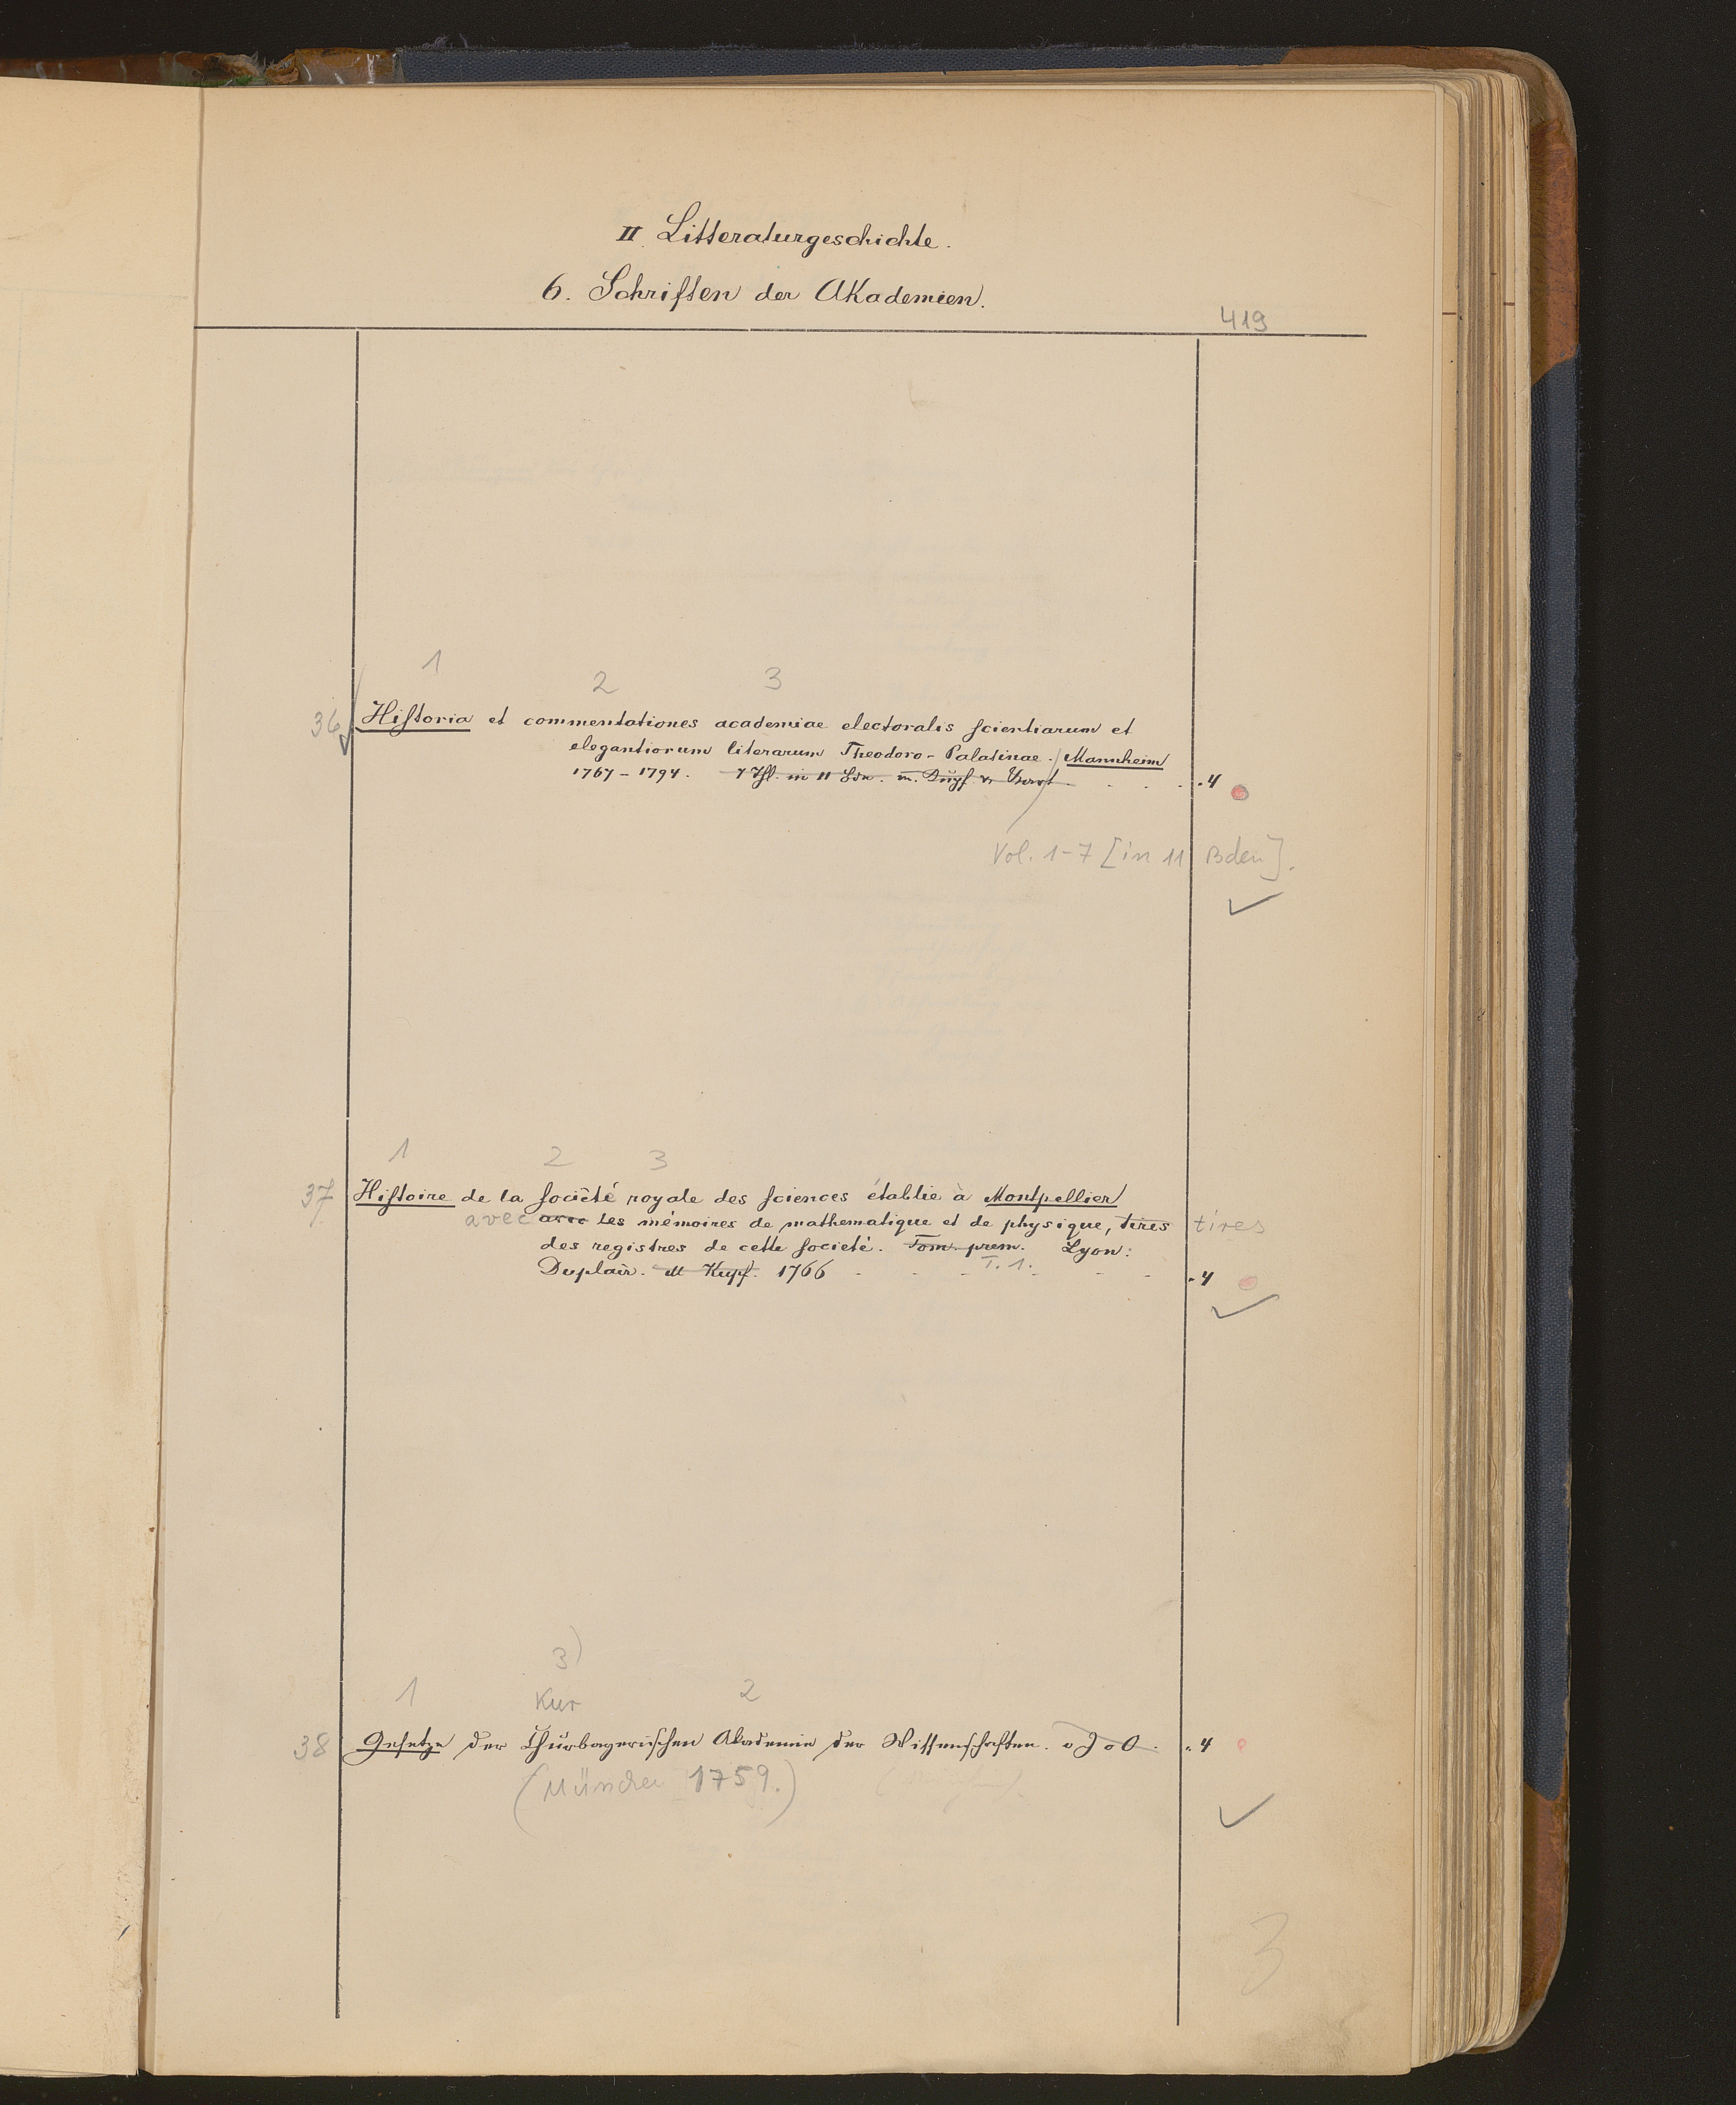 II. Litteraturgeschichte.
6. Schriften der Akademien.
419
1 2 3
36 Historia et commentationes academiae electoralis scientiarum et
elegantiorum literarum Theodoro-Palatinae. / Mannheim
1767-1794. 7 Thl. in 11 Bdn. m. Kupf. u. Portr. . . . . 4
Vol. 1-7 [in 11 Bden].
1 2 3
37 Histoire de la société royale des sciences établie à Montpellier
avec avec les mémoires de mathematique et de physique, tires tires
des registres de cette societé. Tom. prem. Lyon:
T. 1.
Duplain. M Kupf. 1766 - - - - - - - 4
3)
1 Kur 2
38 Gesetze der Churbayerischen Akademie der Wissenschaften. o J o O. . 4
(München 1759.)
3